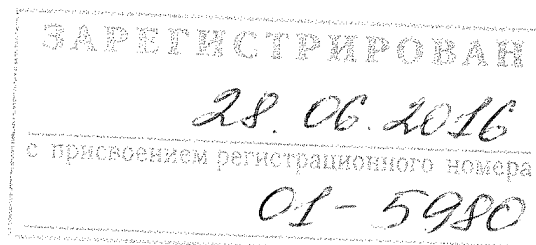 ЗАРЕГИСТРИРОВАН
28.06.2016
с присвоением регистрационного номера
01-5980